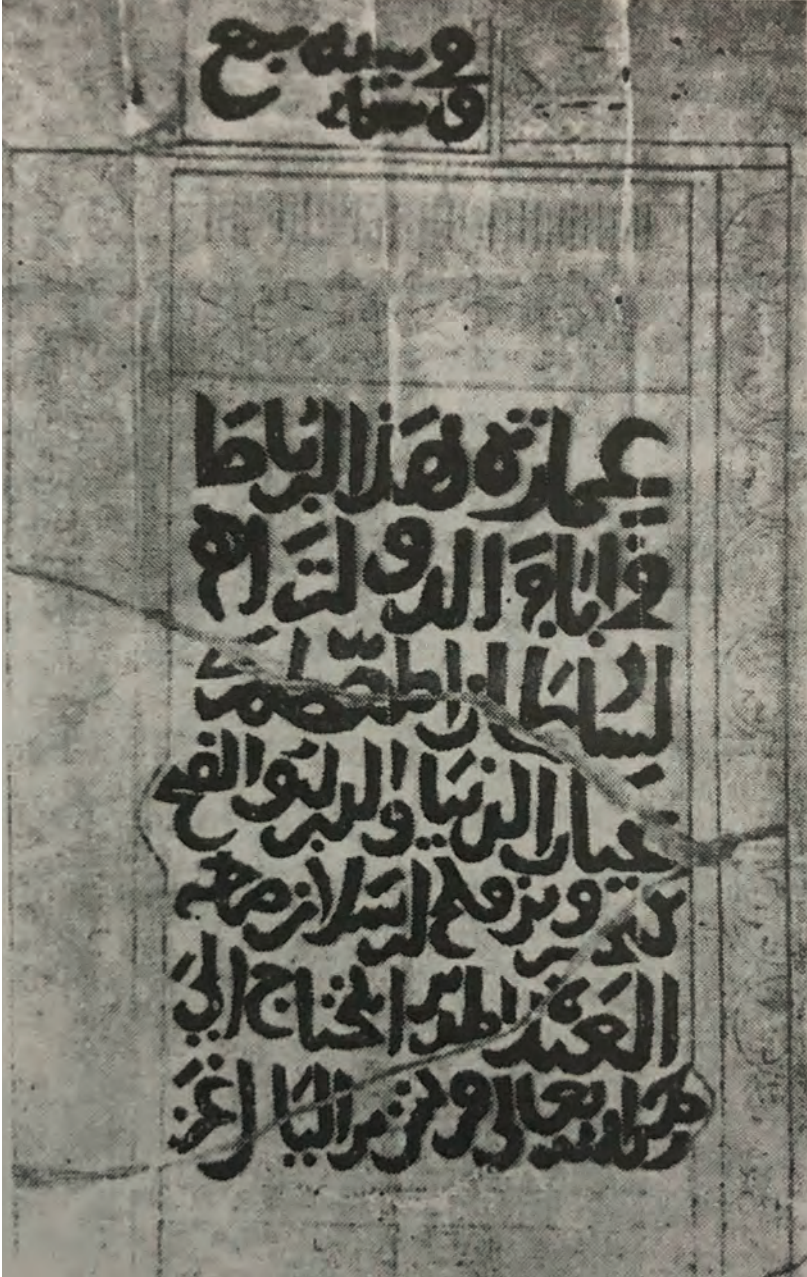 في سنة سبع
وستمائة
عمارة هذا الرباط
في ايام الدولة
لسلطان المعظم
غياث الدنيا والدين بو الفتح
كيخسرو بن قلج ارسلان
العبد المذنب المحتاج الي
رحمة الله تعالي